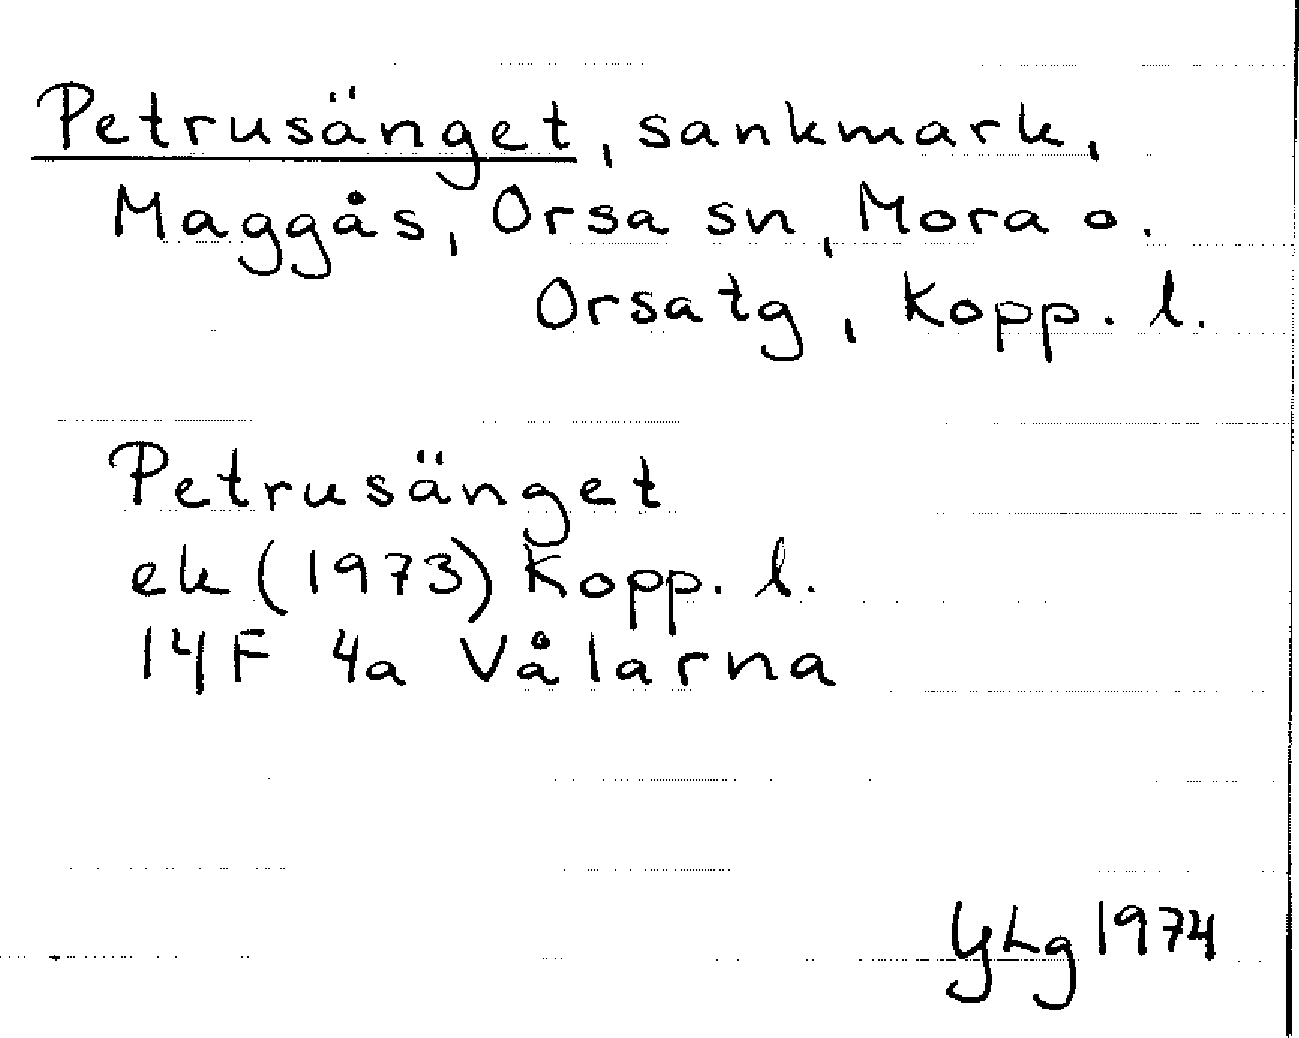 Petrusänget, sankmark,
Maggås, Orsa sn, Mora o.
Orsatg, Kopp. l.
Petrusänget
ek (1973) Kopp. l.
14F 4a Vålarna
YLg 1974